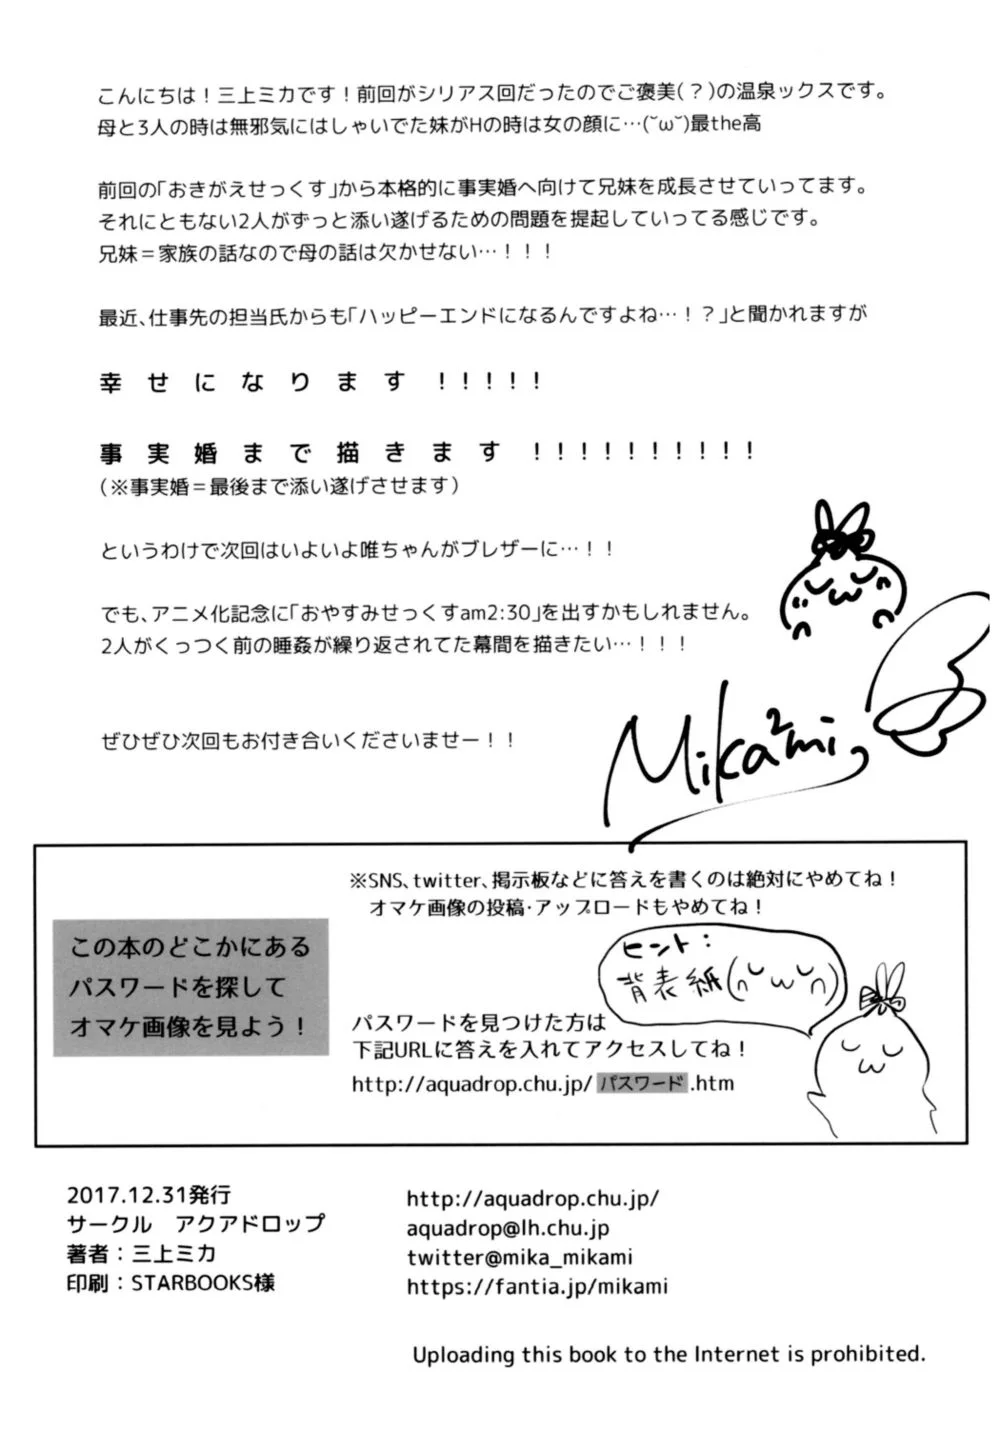 こんにちは！三上ミカです！前回がシリアス回だったのでご褒美(？)の温泉ックスです。
母と3人の時は無邪気にはしゃいでた妹がHの時は女の顔に…(˘ω˘)最the高
前回の「おきがえせっくす」から本格的に事実婚へ向けて兄妹を成長させていってます。
それにともない2人がずっと添い遂げるための問題を提起していってる感じです。
兄妹＝家族の話なので母の話は欠かせない…！！！
最近、仕事先の担当氏からも「ハッピーエンドになるんですよね…！？」と聞かれますが
幸せになります！！！！！
事実婚まで描きます！！！！！！！！！！
(※事実婚＝最後まで添い遂げさせます)
というわけで次回はいよいよ唯ちゃんがブレザーに…！！
でも、アニメ化記念に「おやすみせっくすam2:30」を出すかもしれません。
2人がくっつく前の睡姦が繰り返されてた幕間を描きたい…！！！
ぜひぜひ次回もお付き合いくださいませー！！
Mika2mi
※SNS、twitter、掲示板などに答えを書くのは絶対にやめてね！
オマケ画像の投稿・アップロードもやめてね！
この本のどこかにある
パスワードを探して
オマケ画像を見よう！
ヒント：
背表紙(˘ω˘)
パスワードを見つけた方は
下記URLに答えを入れてアクセスしてね！
http://aquadrop.chu.jp/パスワード.htm
2017.12.31発行
サークル　アクアドロップ
著者：三上ミカ
印刷：STARBOOKS様
http://aquadrop.chu.jp/
aquadrop@lh.chu.jp
twitter@mika_mikami
https://fantia.jp/mikami
Uploading this book to the Internet is prohibited.